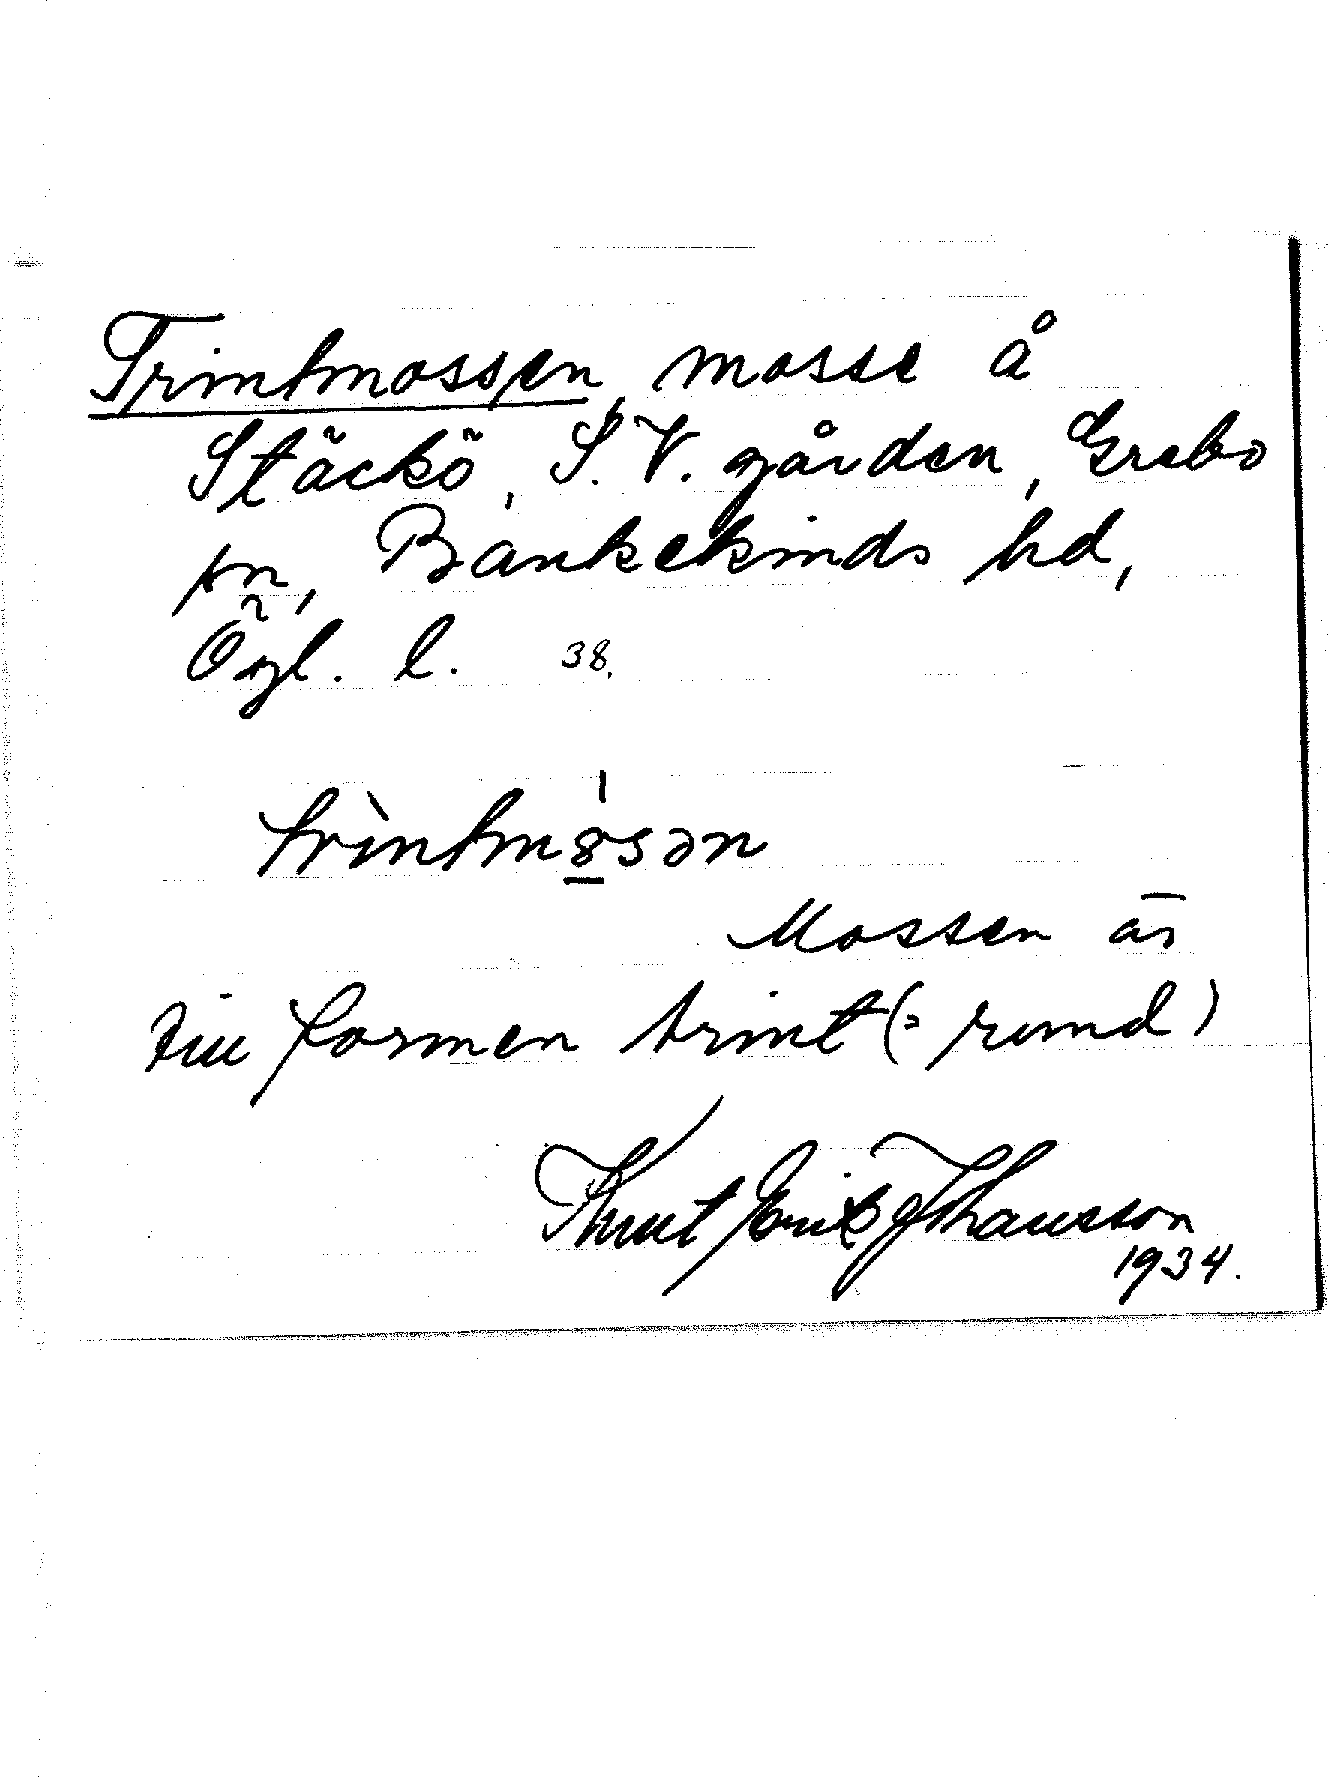 Trintmossen, mosse å
Stäckö, S. V. gården, Grebo
sn, Bankekinds hd,
Ögl. l. 38.
trìntmo̲sən
Mossen är
till formen trint (= rund)
Knut Erik Johansson
1934.